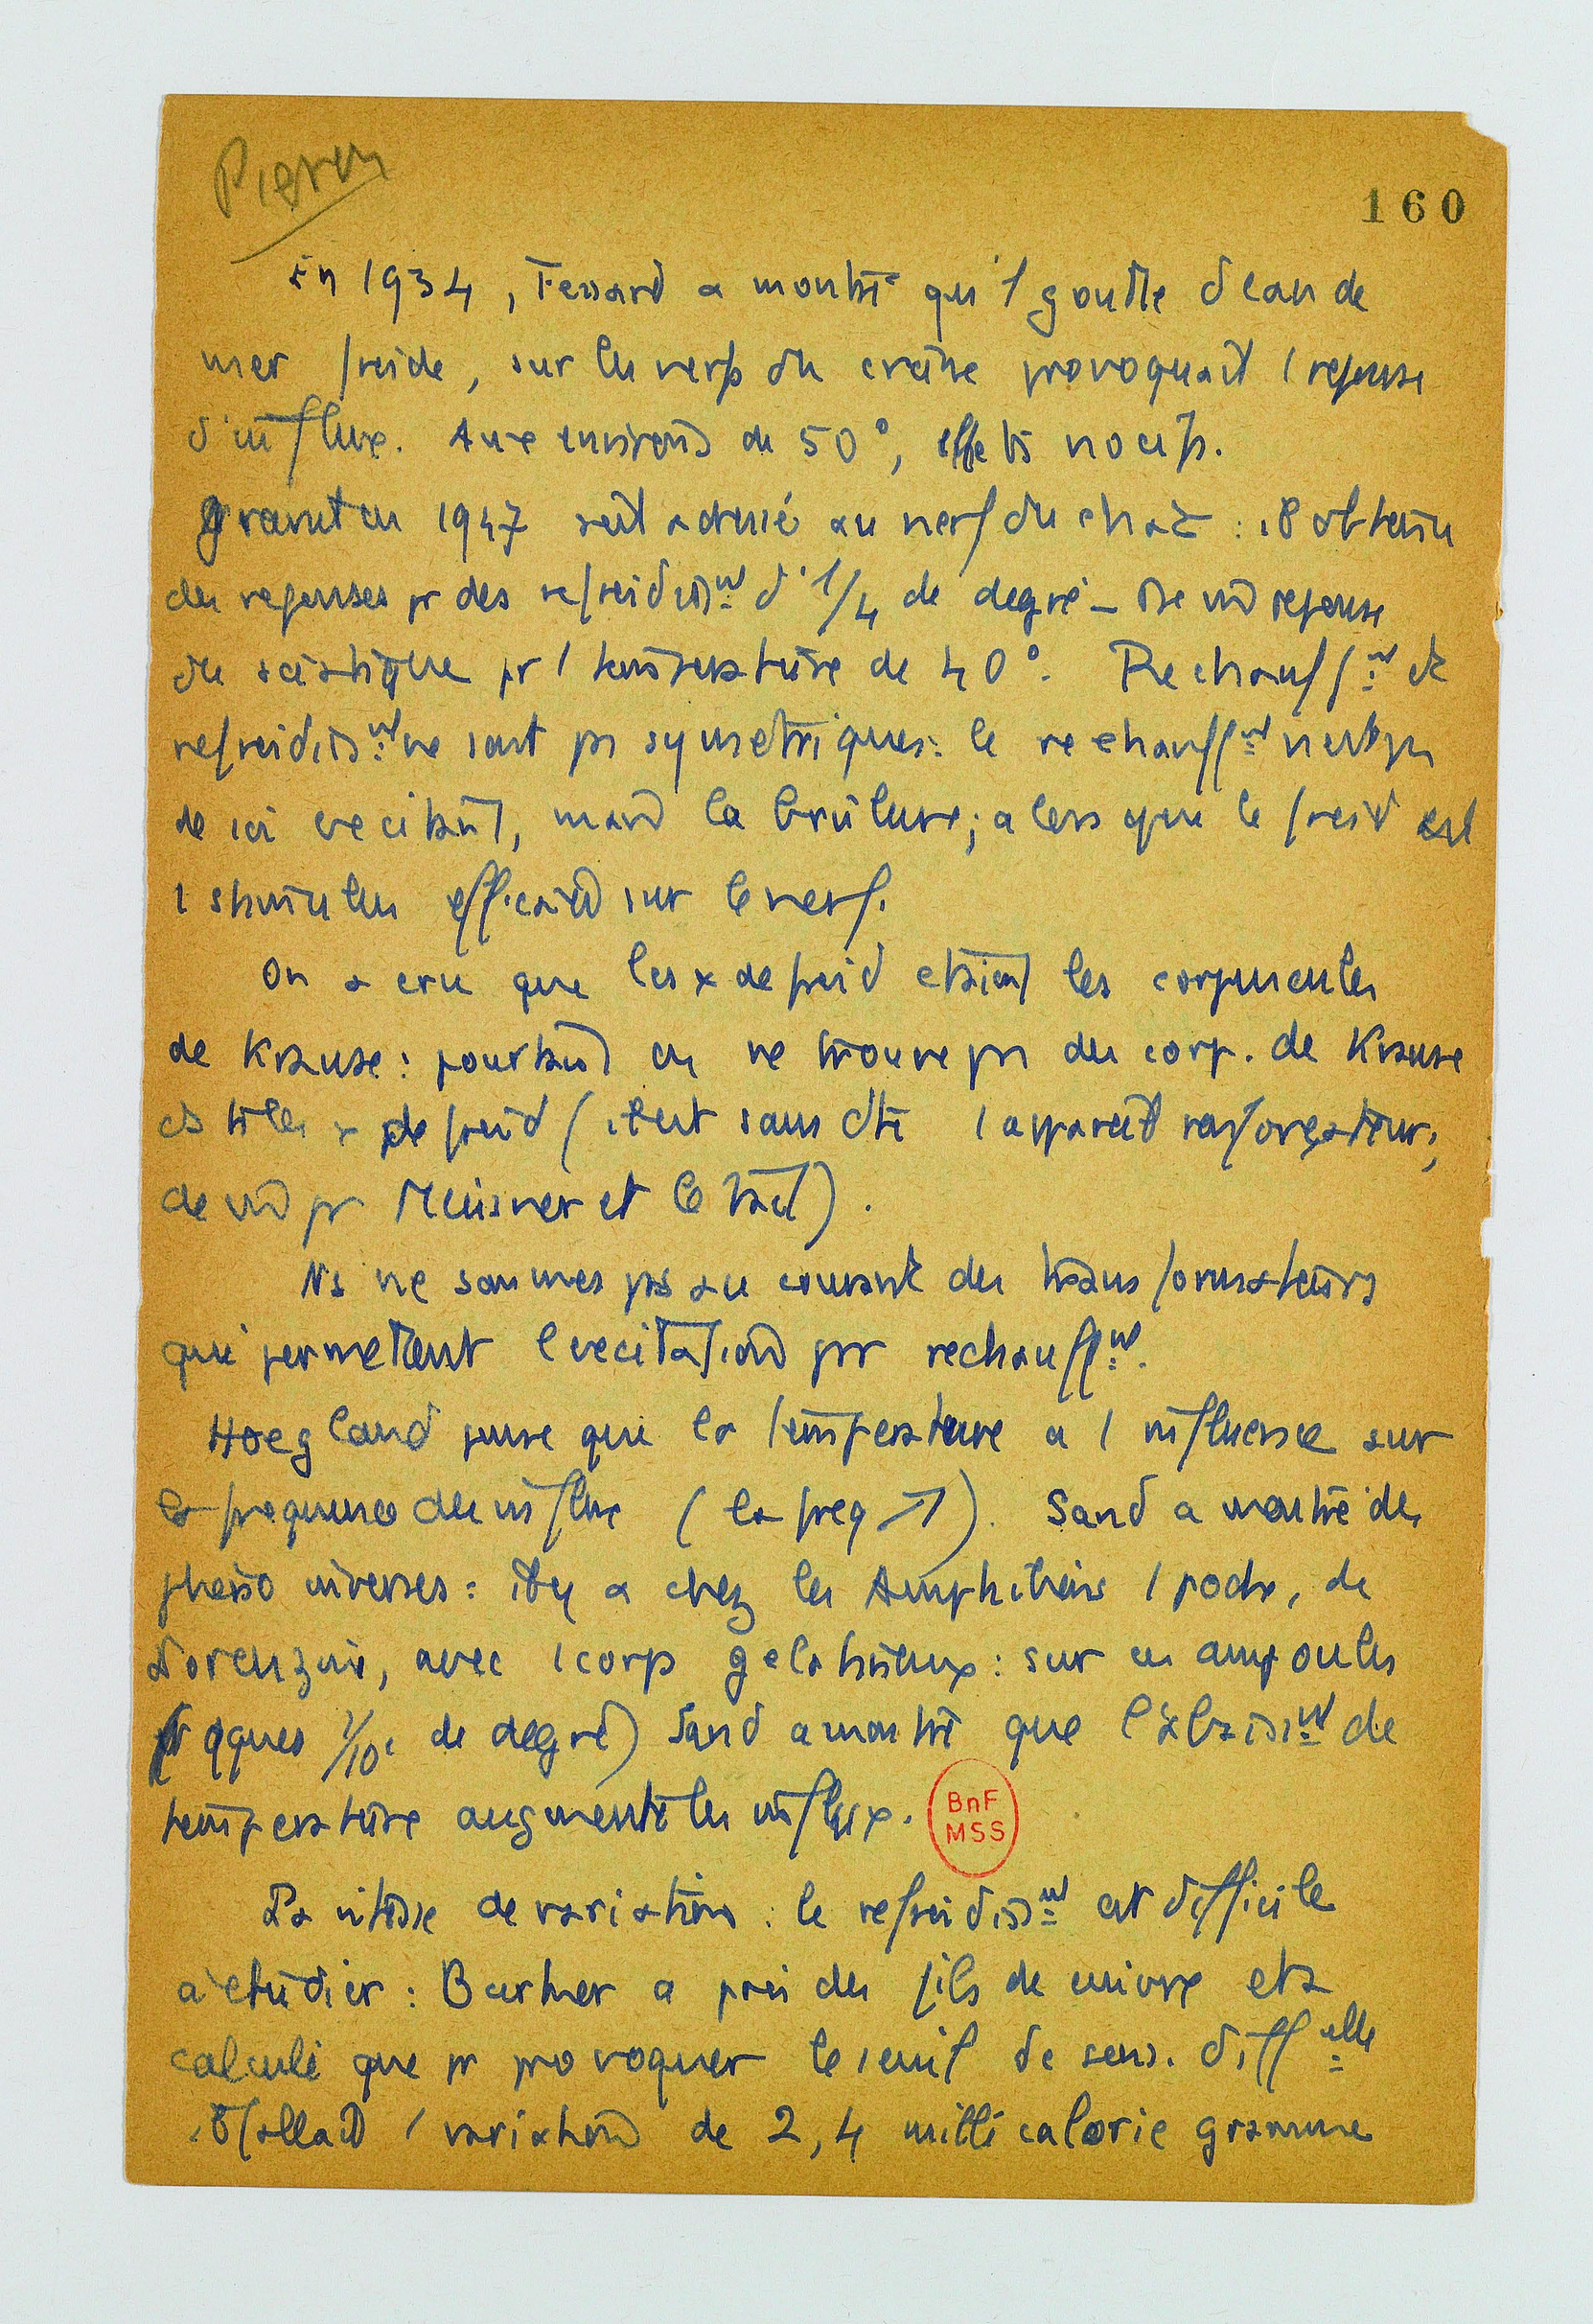 Pieron
160
En 1934, Fessard a montré qu'1 goutte d'eau de
mer froide, sur les nerfs du crâne provoquait 1 reponse
d'influx. Aux environs de 50°, effets nocifs.
en 1947 s'est adressé au nerf du chat : il obtenu
des reponses pr des refroidissmt d'1/4 de degré _ de reponse
du sciatique pr 1 temperature de 40°. Rechauffmt et
refroidissmt ne sont ps symetriques: le rechauffmt n'est ps
de soi excitant, mais la brûlure; alors que le froid est
1 stimulus efficace sur le nerf.
On a cru que les x de froid etaient les corpuscules
de Krause: pourtant on ne trouve ps des corp. de Krause
ds ts les x de froid (il est sans dte 1 appareil renforçateur,
de pr Meissner et le tact).
Ns ne sommes ps au courant des transformateurs
qui permettent l'excitation pr rechauffmt.
Hoegland pense que la temperature a 1 influence sur
la frequence des influx (la freq ↗). Sand a montré des
pheno inverses: il y a chez les Amphibiens 1 poche, de
Lorenzini, avec 1 corp gelatineux: sur ces ampoules
(qques 1/10e de degré) Sand a montré que l'abaissmt de
temperature augmente les influx.
BnF
MSS
La vitesse de variation : le refroidissmt est difficile
à etudier : a pris des fils de cuivre et a
calculé que pr provoquer le seuil de sens. diffelle
il fallait 1 variation de 2,4 milli calorie gramme